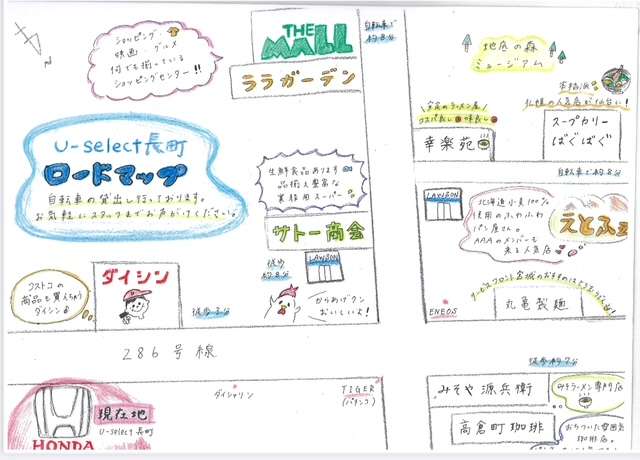 ショッピング、
映画、グルメ
何でも揃っている
ショッピングセンター!!
THE
MALL
ララガーデン
自転車で
約8分
地底の森
ミュージアム
本格派
札幌の人気店が仙台に!
スープカリー
ばぐばぐ
コスパ良し 味良し
幸楽苑
自転車で約8分
U-select長町
ロードマップ
自転車の貸出し行っております。
お気軽にスタッフまでお声がけください。
生鮮食品あります
品揃え豊富な
業務用スーパー
サトー商会
LAWSON
徒歩
約8分
からあげクン
おいしいよ!
コストコの
商品も買えちゃう
ダイシン
ダイシン
徒歩2分
LAWSON
北海道小麦100%
使用のふわふわ
パン屋さん。
AAAのメンバーも
来る人気店
えとふぇ
ENEOS
丸亀製麺
286号線
徒歩約7分
現在地
U-select 長町
HONDA
ダイシャリン
TIGER
(パチンコ)
みそや源兵衛
みそラーメン専門店
高倉町珈琲
おちついた雰囲気
珈琲店。